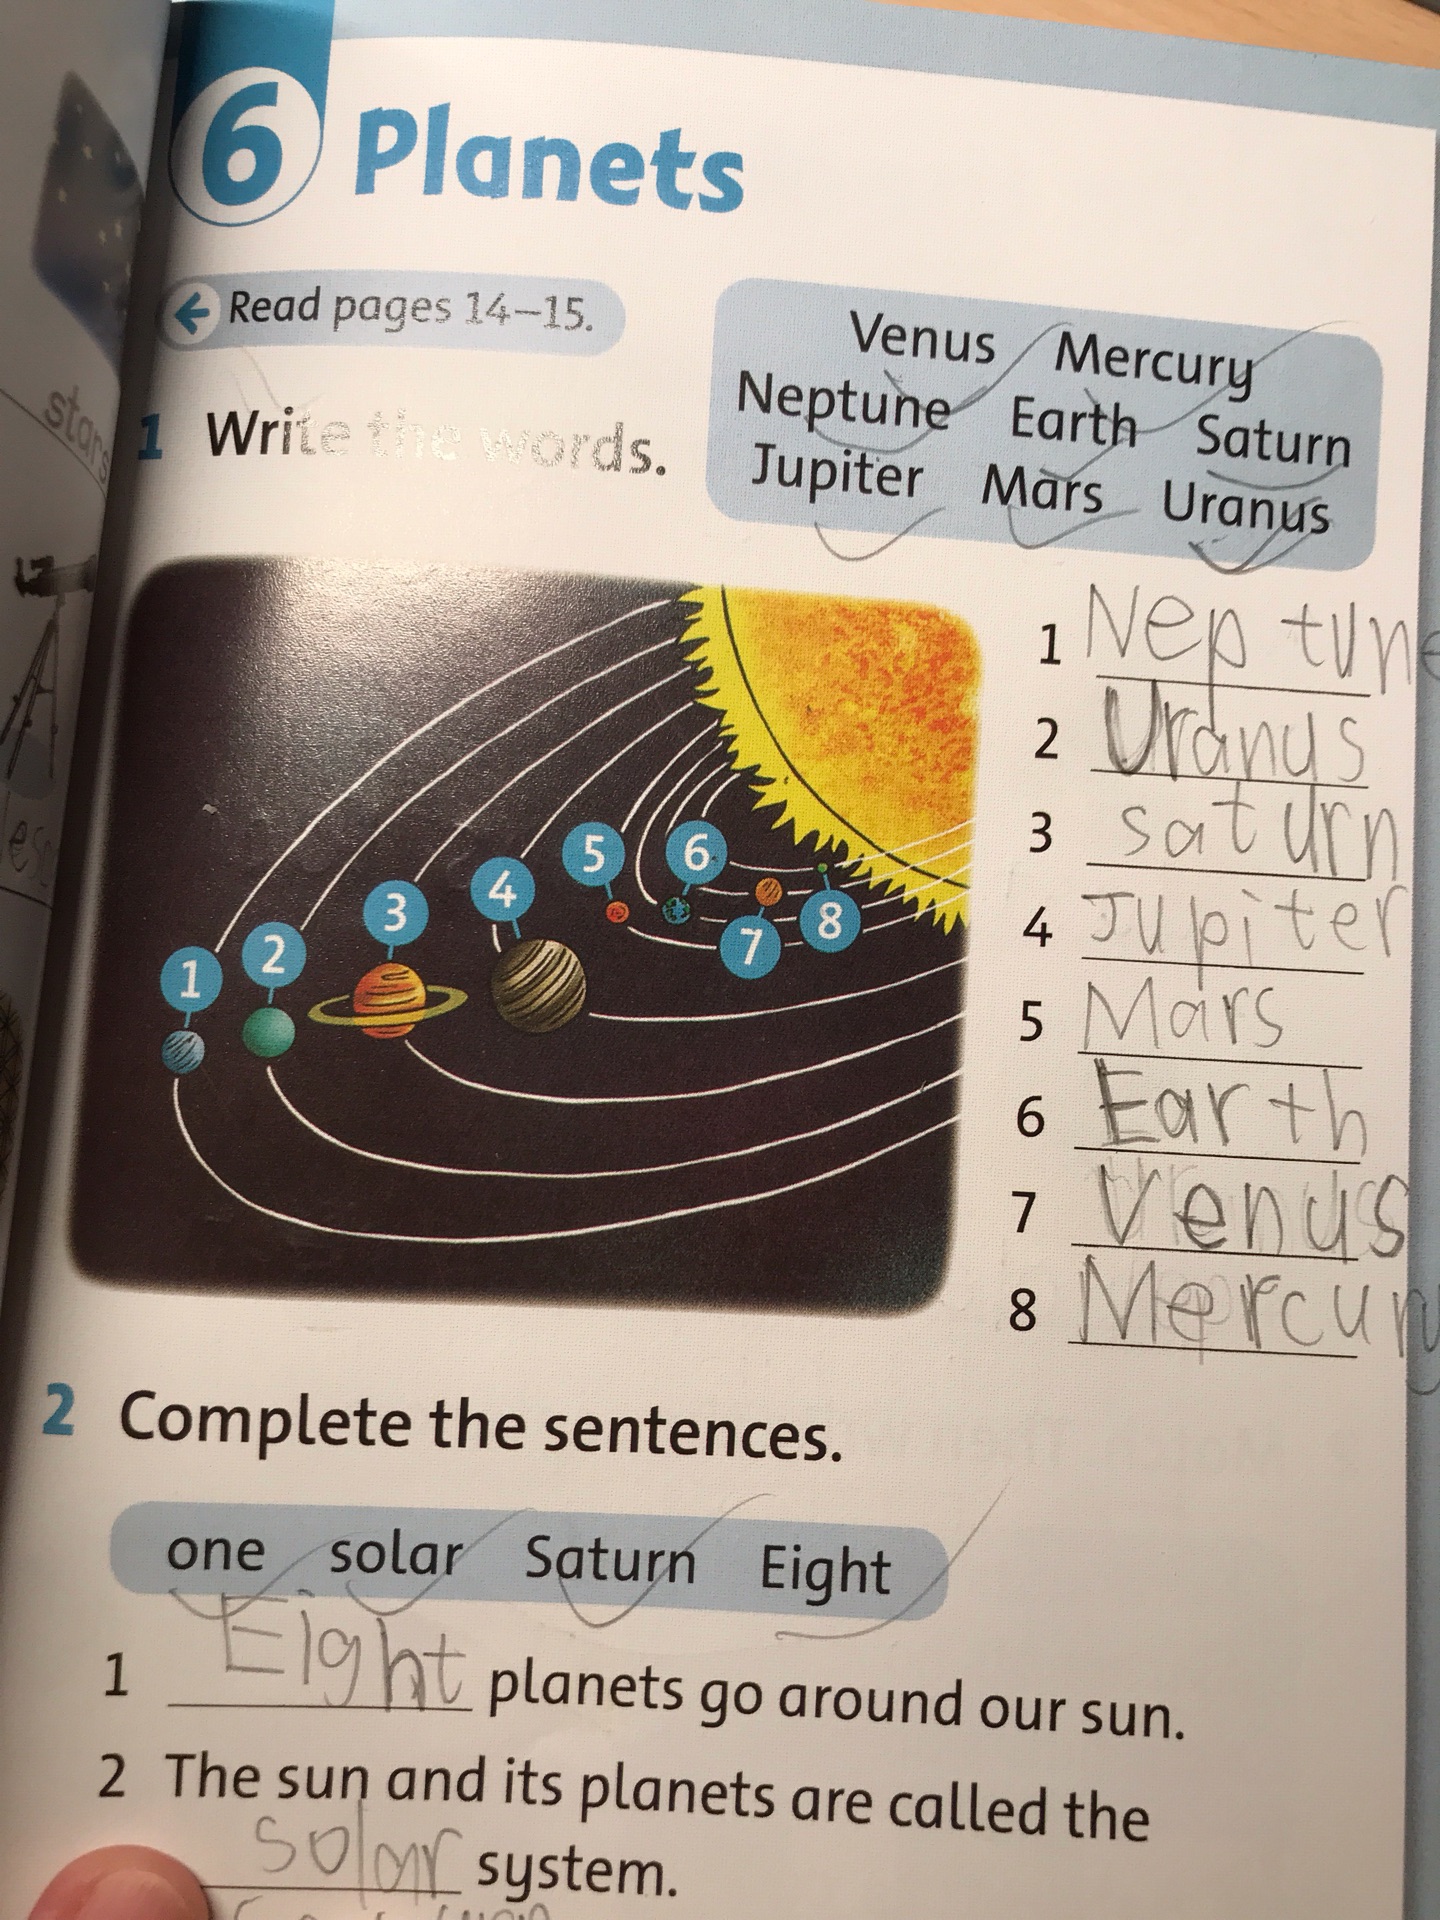 6 Planets
← Read pages 14–15.
1 Write the words.
Venus Mercury
Neptune Earth Saturn
Jupiter Mars Uranus
stars
1 2 3 4 5 6 7 8
1 Neptune
2 Uranus
3 saturn
4 Jupiter
5 Mars
6 Earth
7 Venus
8 Mercury
2 Complete the sentences.
one solar Saturn Eight
1 Eight planets go around our sun.
2 The sun and its planets are called the
solar system.